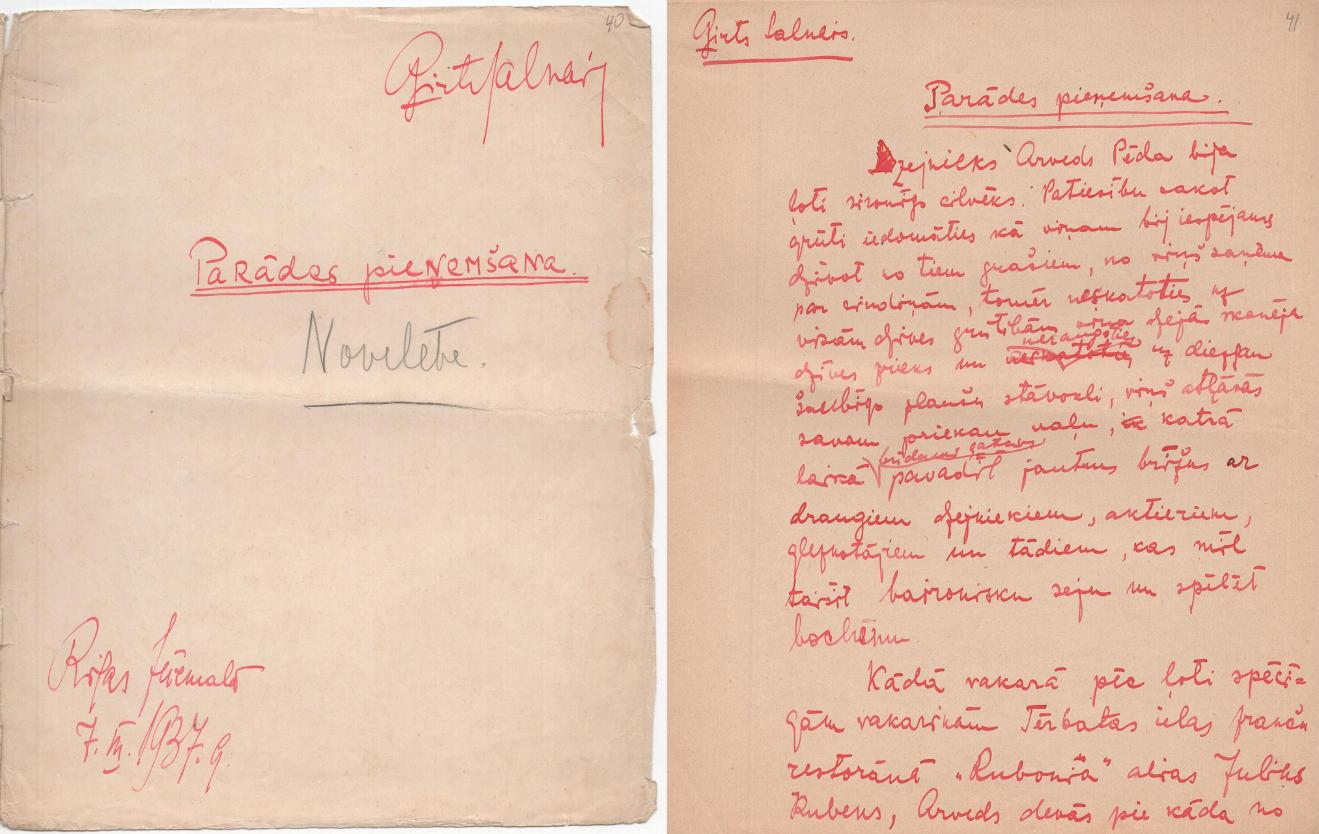 40
Girts Salnais
Parādes pieņemšana.
Novelete.
Rīgas Jūrmalā
7. III. 1937. g.
41
Girts Salnais.
Parādes pieņemšana.
Dzejnieks Arveds Pēda bija
ļoti sirsnīgs cilvēks. Patiesību sakot
grūti iedomāties kā viņam bij iespējams
dzīvot no tiem grašiem, no viņš saņēma
par rindiņām, tomēr neskatoties uz
visām dzīves grūtībām viņa dzejā skanēja
dzīves prieks un neskatoties uz diezgan
neraugoties
šaubīgo plaušu stāvokli, viņš atļāvās
savam priekam vaļu, katrā
laikā pavadīt jautrus brīžus ar
būdams gatavs
draugiem dzejniekiem, aktieriem,
gleznotājiem un tādiem, kas mīl
taisīt baironisku seju un spēlēt
bochēmu
Kādā vakarā pēc ļoti spēcī=
gām vakariņām Tērbatas ielas franču
restorānā „Rubonjā" alias Juliks
Rubens, Arveds devās pie kāda no